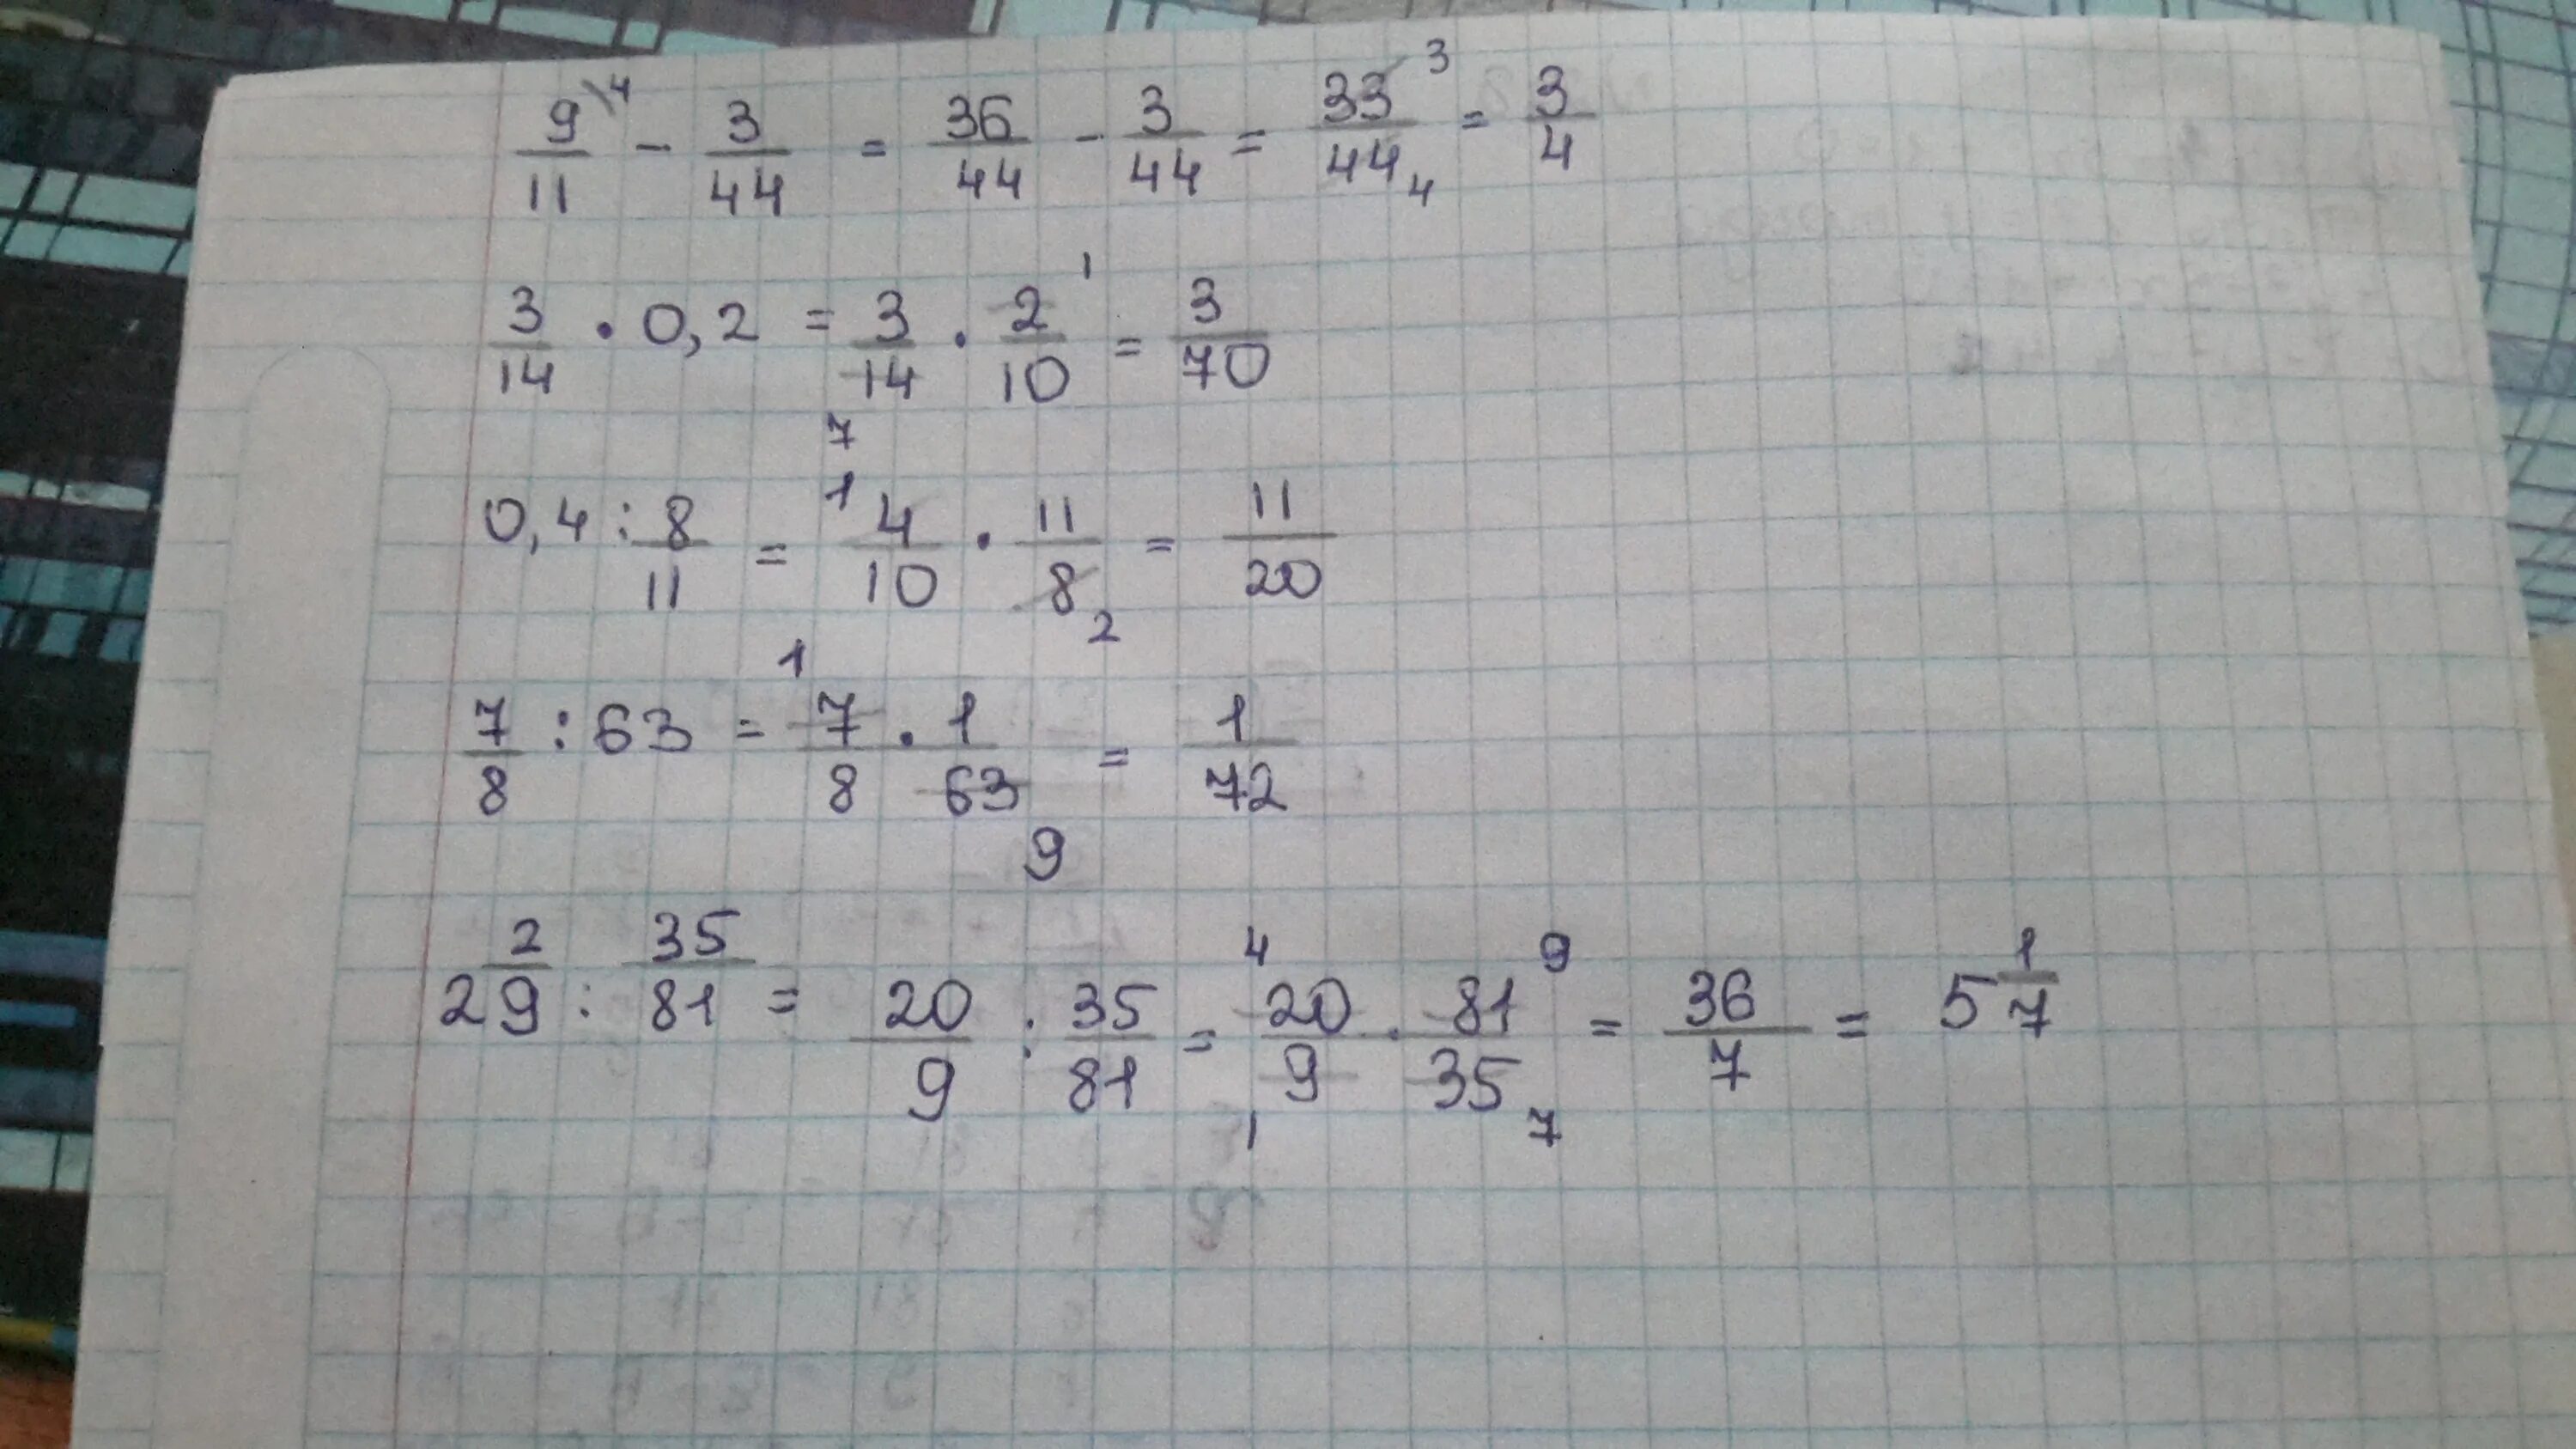 9/11 \4 - 3/44 = 36/44 - 3/44 = 33 3/44 4 = 3/4
3/14 · 0,2 = 3/14 7 · 2 1/10 = 3/70
0,4 : 8/11 = 1 4/10 · 11/8 2 = 11/20
7/8 : 63 = 1 7/8 · 1/63 9 = 1/72
2 2/9 : 35/81 = 20/9 : 35/81 = 4 20/9 1 · 81 9/35 7 = 36/7 = 5 1/7